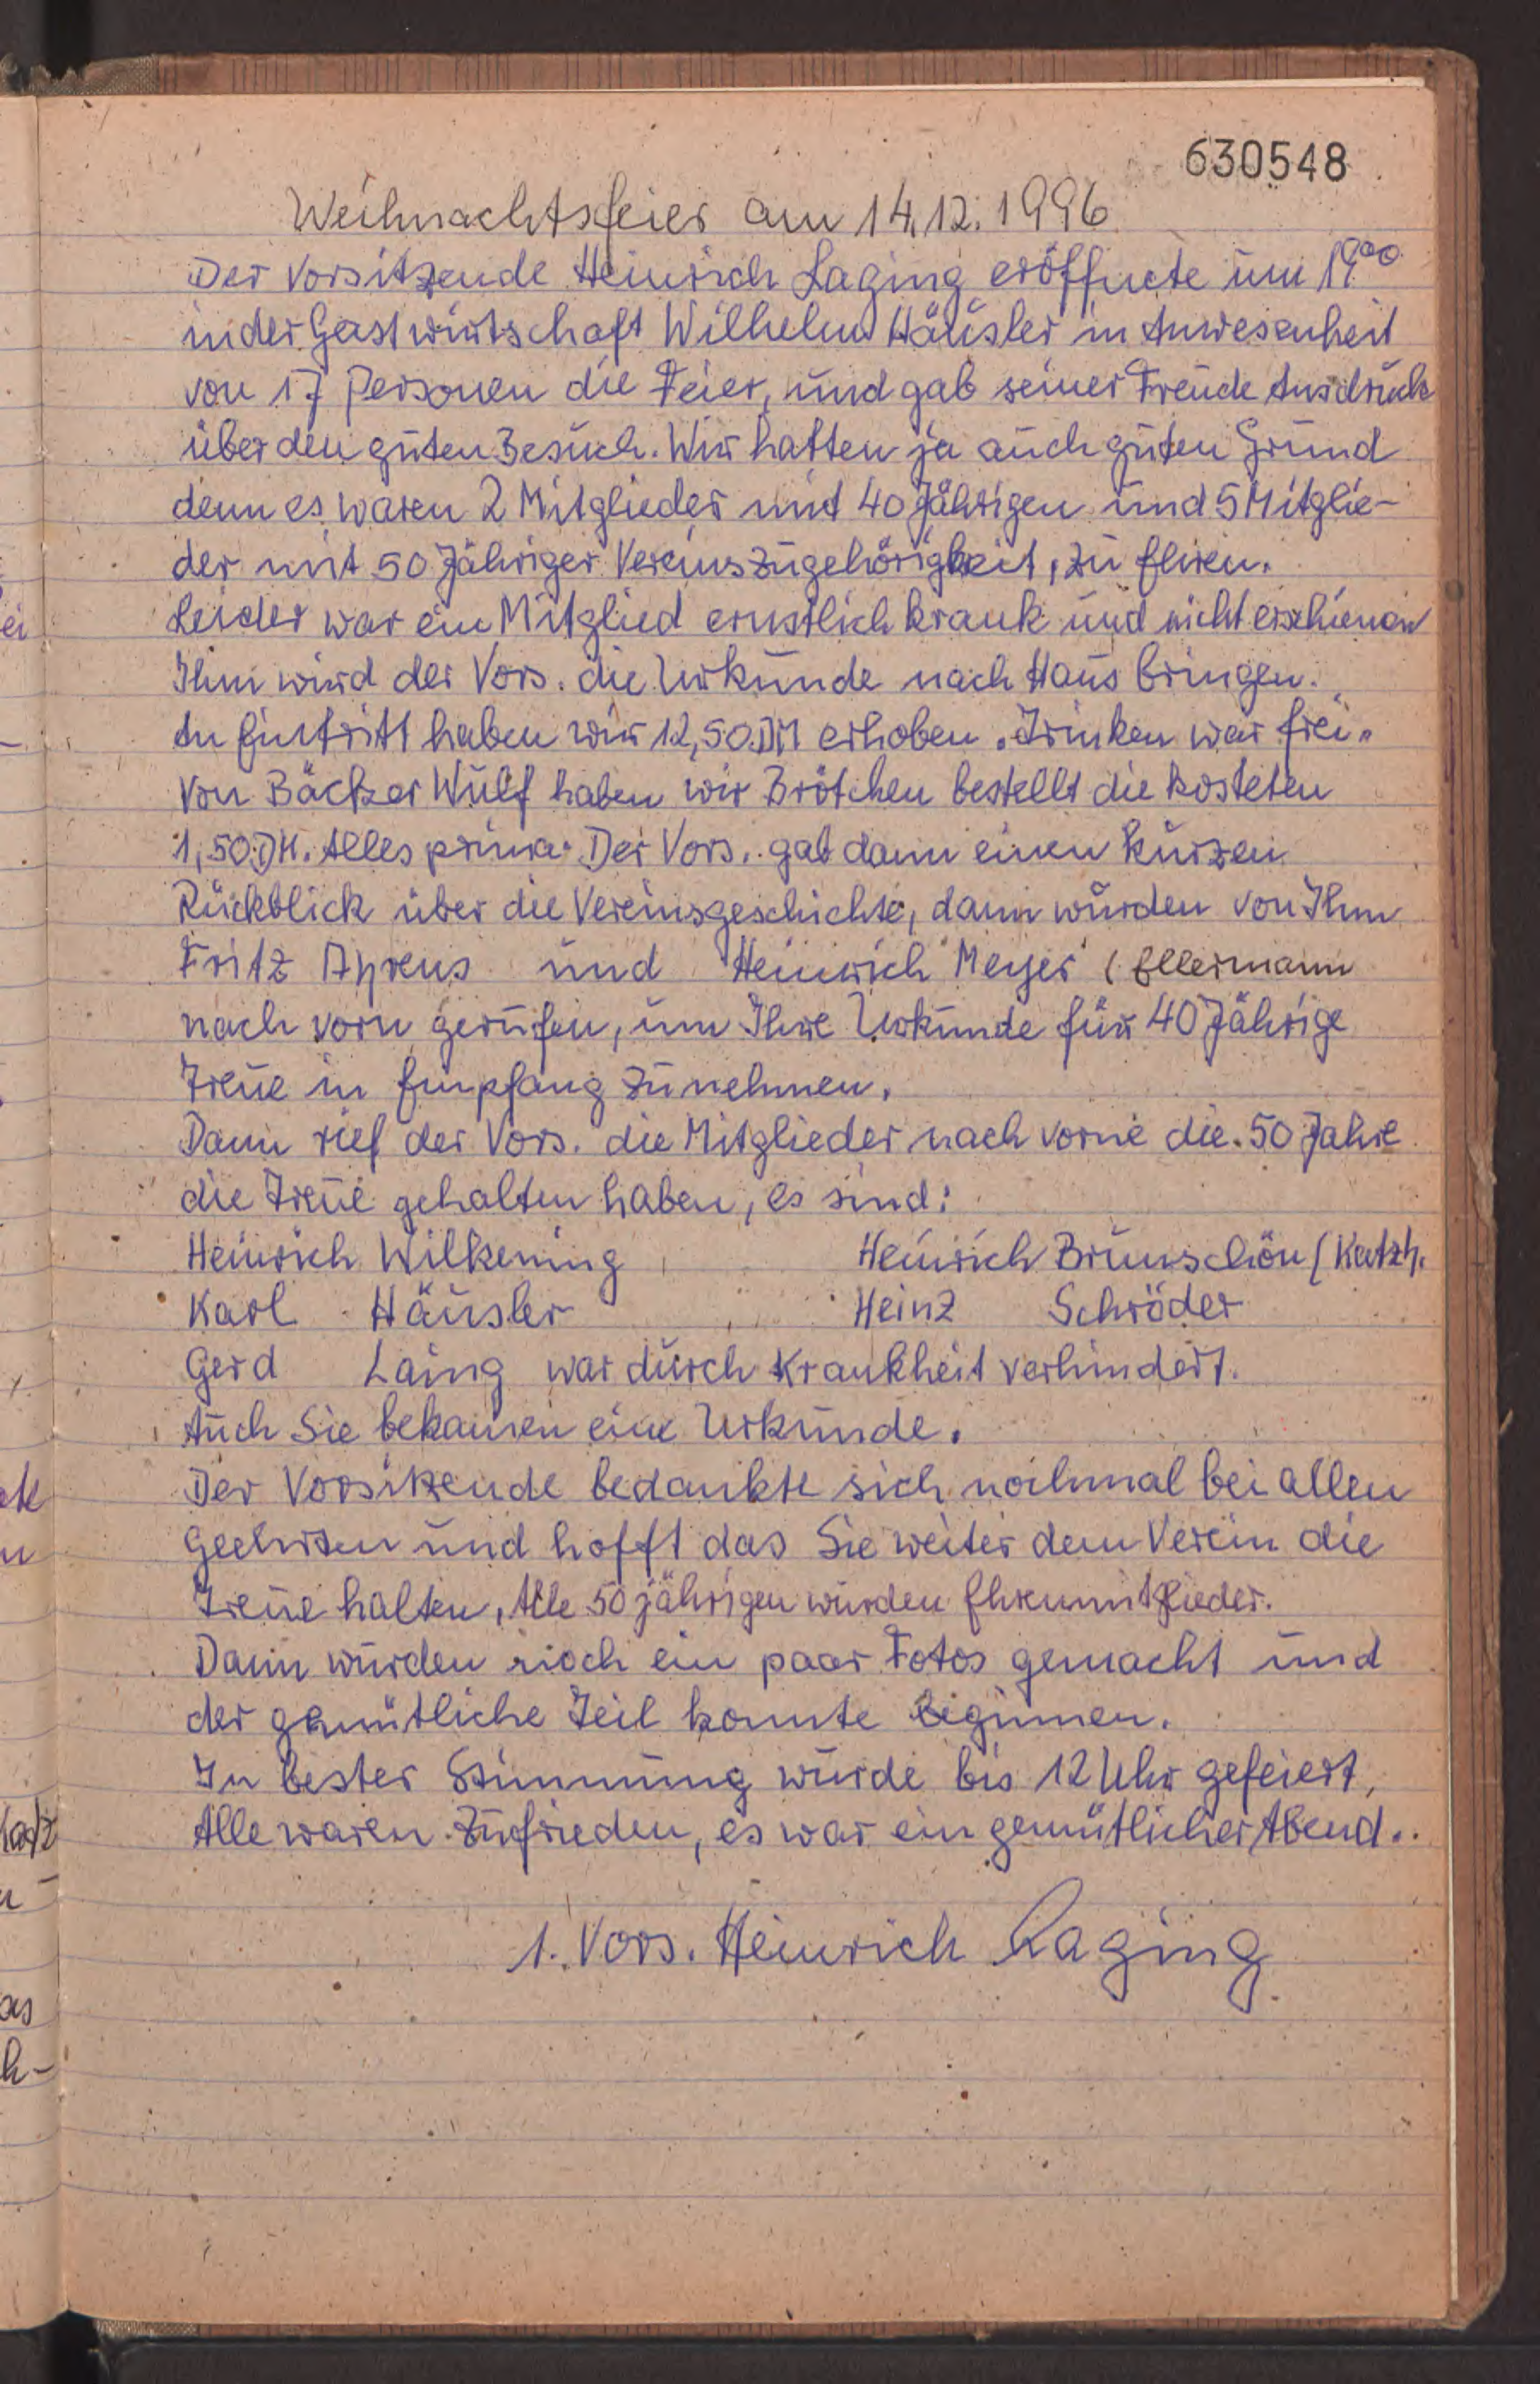 630548
Weihnachtsfeier am 14.12.1996
Der Vorsitzende Heinrich Laging eröffnete um 19.00
in der Gastwirtschaft Wilhelm Häusler in Anwesenheit
von 17 Personen die Feier, und gab seiner Freude Ausdruck
über den guten Besuch. Wir hatten ja auch guten Grund
denn es waren 2 Mitglieder mit 40 Jährigen und 5 Mitglie-
der mit 50 Jähriger Vereinszugehörigkeit, zu Ehren.
Leider war ein Mitglied ernstlich krank und nicht erschienen
Ihm wird der Vors. die Urkunde nach Haus bringen.
An Eintritt haben wir 12,50 DM erhoben. Trinken war frei.
Von Bäcker Wulf haben wir Brötchen bestellt die kosteten
1,50 DM. Alles prima. Der Vors. gab dann einen kurzen
Rückblick über die Vereinsgeschichte, dann wurden von Ihm
Fritz Ahrens und Heinrich Meyer (Ellermann
nach vorn gerufen, um Ihre Urkunde für 40 Jährige
Treue in Empfang zu nehmen.
Dann rief der Vors. die Mitglieder nach vorne die 50 Jahre
die Treue gehalten haben, es sind:
Heinrich Wilkening Heinrich Brunschön (Katzh.
Karl Häusler Heinz Schröder
Gerd Laing war durch Krankheit verhindert.
Auch Sie bekamen eine Urkunde.
Der Vorsitzende bedankte sich nochmal bei allen
Geehrten und hofft das Sie weiter dem Verein die
Treue halten, Alle 50 jährigen wurden Ehrenmitglieder.
Dann wurden noch ein paar Fotos gemacht und
der gemütliche Teil konnte beginnen.
In bester Stimmung wurde bis 12 Uhr gefeiert,
Alle waren zufrieden, es war ein gemütlicher Abend.
1. Vors. Heinrich Laging